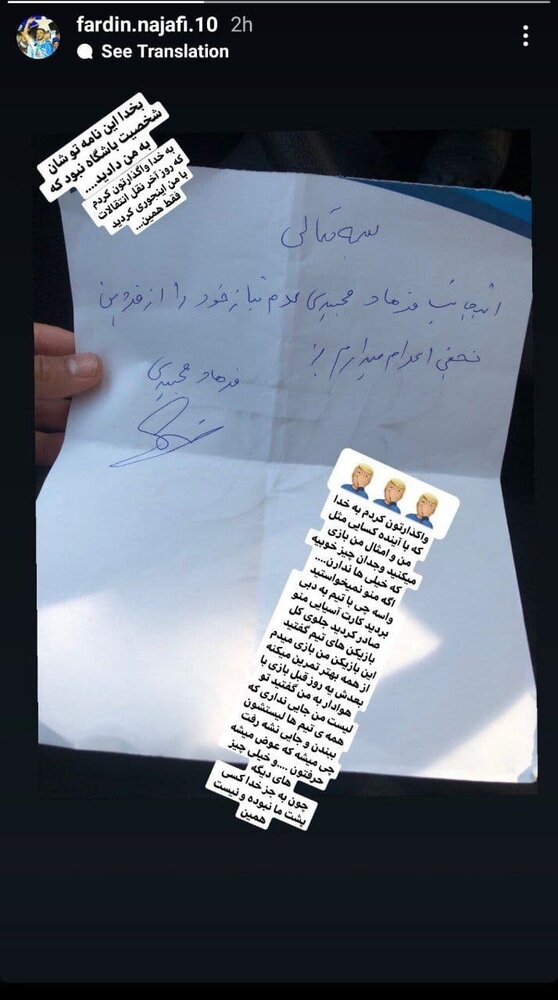 fardin.najafi.10 2h
See Translation
بخدا این نامه تو شان
شخصیت باشگاه نبود که
به من دادید....
به خدا واگذارتون کردم
که روز آخر نقل انتقالات
با من اینجوری کردید
فقط همین...
بسمه تعالی
اینجانب فرهاد مجیدی عدم نیاز خود را از فردین
نجفی اعلام میدارم
فرهاد مجیدی
واگذارتون کردم به خدا
که با آینده کسایی مثل
من و امثال من بازی
میکنید وجدان چیز خوبیه
که خیلی ها ندارن....
اگه منو نمیخواستید
واسه چی با تیم به دبی
بردید کارت آسیایی منو
صادر کردید جلوی کل
بازیکن های تیم گفتید
این بازیکن من بازی میدم
از همه بهتر تمرین میکنه
بعدش یه روز قبل بازی با
هوادار به من گفتید تو
لیست من جایی نداری که
همه ی تیم ها لیستشون
ببندن و جایی نشه رفت
چی میشه که عوض میشه
حرفتون ....و خیلی چیز
های دیگه
چون به جز خدا کسی
پشت ما نبوده و نیست
همین